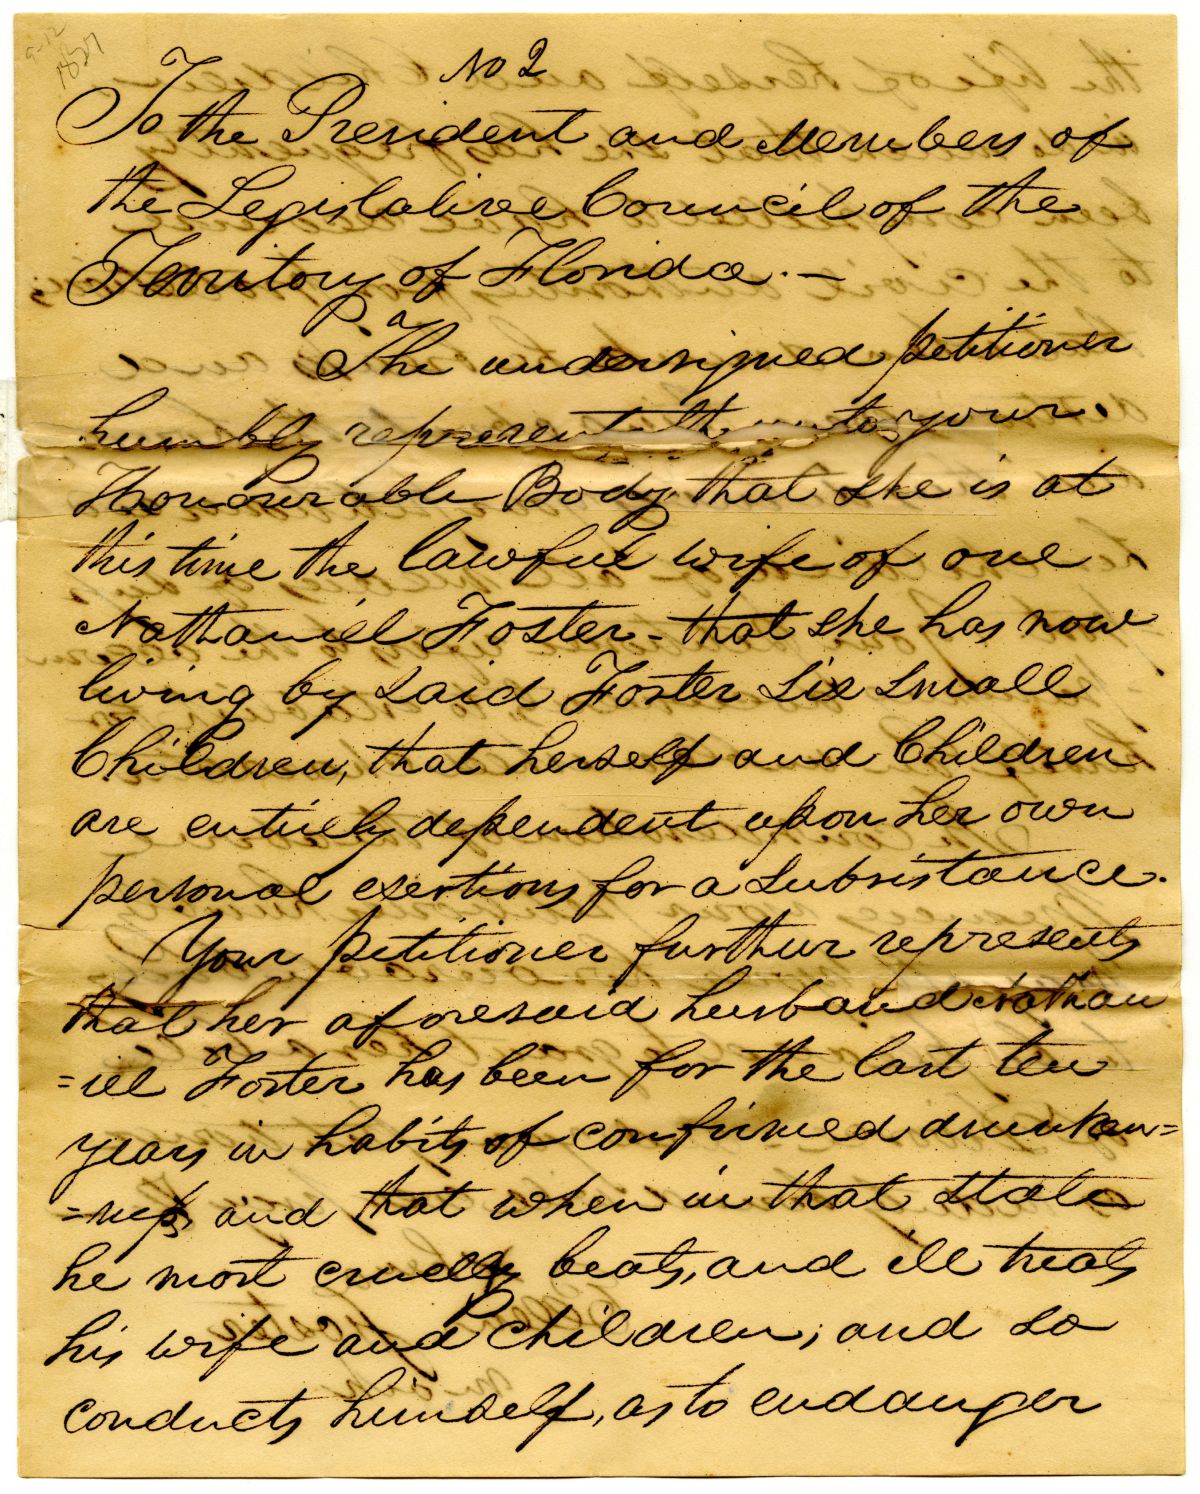 9-12
1827
No 2
To the President and Members of
the Legislative Council of the
Territory of Florida. —
The undersigned petitioner
humbly representeth unto your
Honourable Body that she is at
this time the lawful wife of one
Nathaniel Foster - that she has now
living by said Foster Six Small
Children, that herself and Children
are entirely dependent upon her own
personal exertions for a Subsistance.
Your petitioner further represents
that her aforesaid husband Nathan
=iel Foster has been for the last ten
years in habits of confirmed drunken=
=ness and that when in that state
he most cruelly beats, and ill treats
his wife and Children; and so
conducts himself, as to endanger